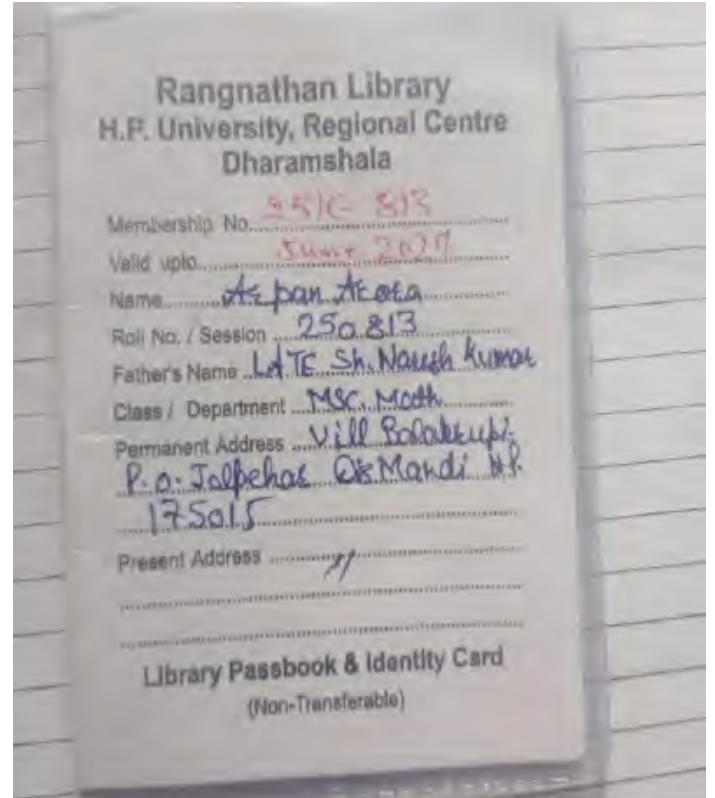 Rangnathan Library
H.P. University, Regional Centre
Dharamshala
Membership No. 25/C- 813
Valid upto June 2027
Name Arpan Arora
Roll No. / Session 250813
Father's Name LATE Sh. Naresh Kumar
Class / Department MSC. Math
Permanent Address Vill
P.O. Jalpehar Dis Mandi H.P.
175015
Present Address
Library Passbook & Identity Card
(Non-Transferable)